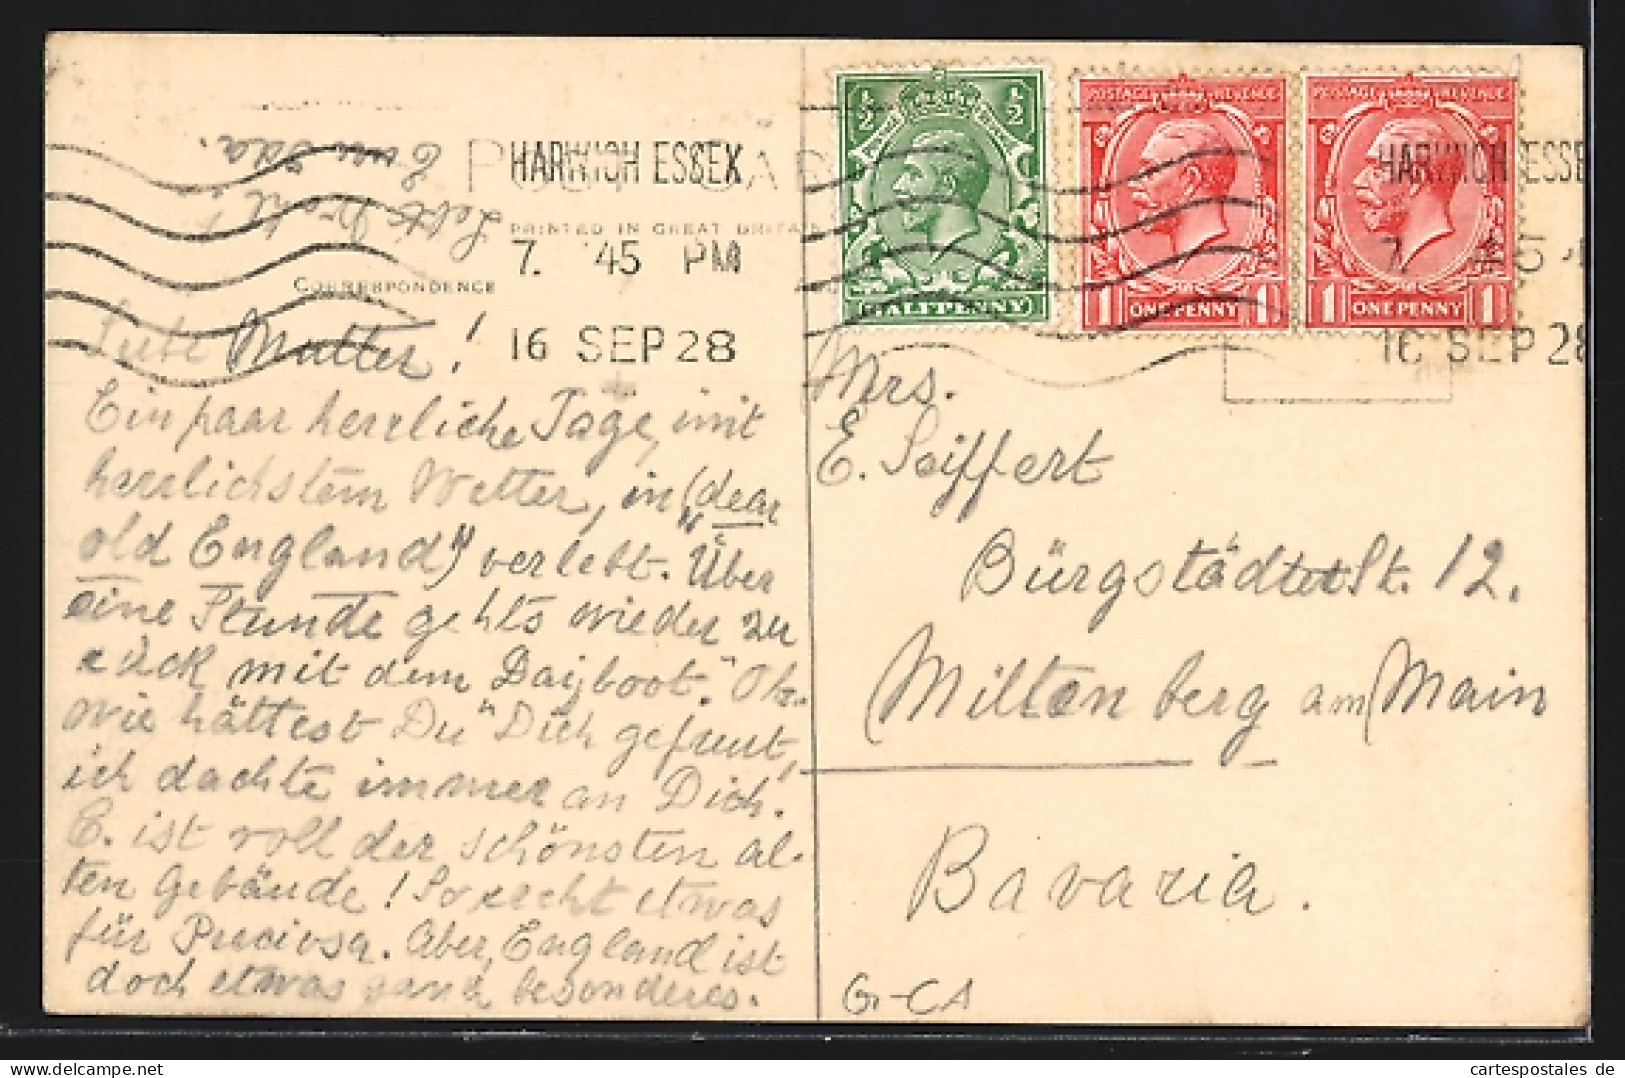 POST CARD
HARWICH ESSEX
PRINTED IN GREAT BRITAIN
7. 45 PM
16 SEP 28
CORRESPONDENCE
Liebe Mutter!
Ein paar herrliche Tage, mit
herrlichstem Wetter, in „(dear
old England)" verlebt. Über
eine Stunde gehts wieder zu
rück mit dem Dampfboot.
wie hättest Du Dich gefreut,
ich dachte immer an Dich.
E. ist voll der schönsten al-
ten Gebäude! So recht etwas
für Preciosa. Aber, England ist
doch etwas ganz besonderes.
½ ½
HALFPENNY
POSTAGE REVENUE
1 ONE PENNY 1
POSTAGE REVENUE
1 ONE PENNY 1
HARWICH ESSE
7. 45
16 SEP 28
Mrs.
E. Seiffert
Bürgstädter St. 12.
Miltenberg am Main
Bavaria.
G-CA
cartespostales de